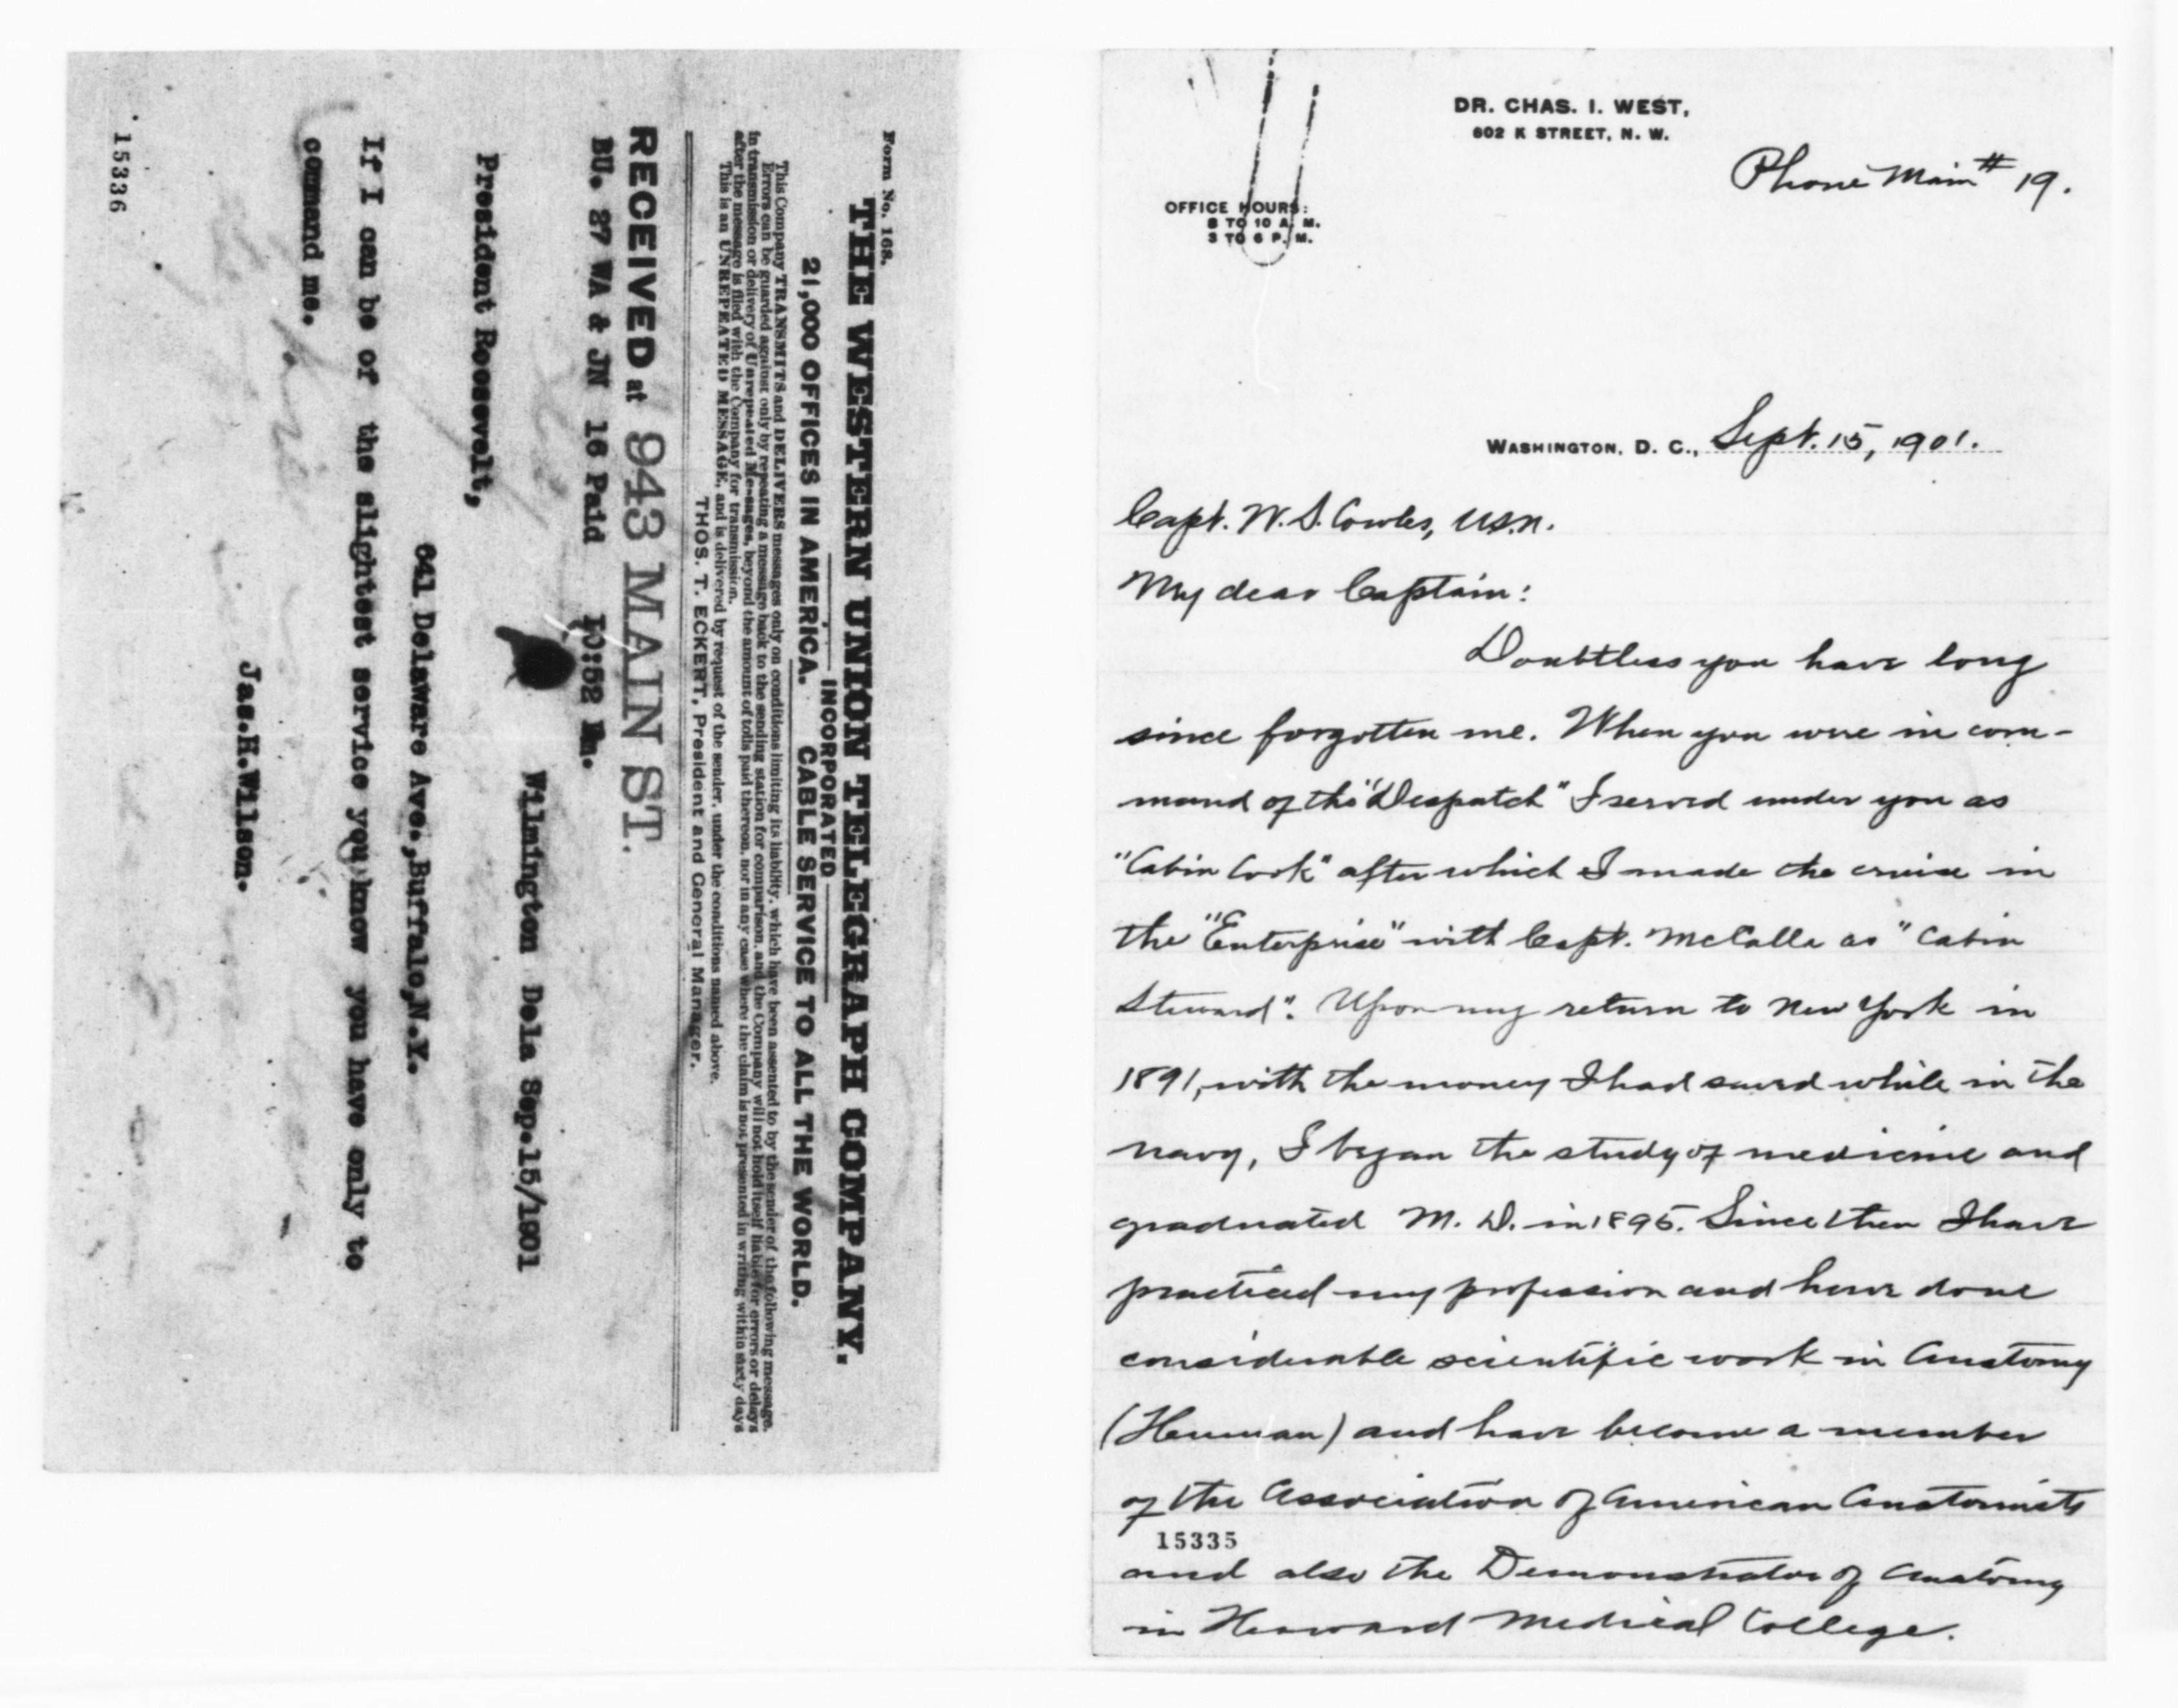 Form No. 168.
THE WESTERN UNION TELEGRAPH COMPANY.
INCORPORATED
21,000 OFFICES IN AMERICA. CABLE SERVICE TO ALL THE WORLD.
This Company TRANSMITS and DELIVERS messages only on conditions limiting its liability, which have been assented to by the sender of the following message.
Errors can be guarded against only by repeating a message back to the sending station for comparison, and the Company will not hold itself liable for errors or delays
in transmission or delivery of Unrepeated Messages, beyond the amount of tolls paid thereon, nor in any case where the claim is not presented in writing within sixty days
after the message is filed with the Company for transmission.
This is an UNREPEATED MESSAGE, and is delivered by request of the sender, under the conditions named above.
THOS. T. ECKERT, President and General Manager.
RECEIVED at 943 MAIN ST.
BU. 27 WA & JN 16 Paid 10:52 m.
Wilmington Dela Sep.15/1901
President Roosevelt,
641 Delaware Ave.,Buffalo,N.Y.
If I can be of the slightest service you know you have only to
command me.
Jas.H.Wilson.
15336
DR. CHAS. I. WEST,
602 K STREET, N. W.
Phone Main # 19.
OFFICE HOURS:
8 TO 10 A. M.
3 TO 6 P. M.
WASHINGTON, D. C., Sept. 15, 1901.
Capt. W. S. Cowles, U.S.N.
My dear Captain:
Doubtless you have long
since forgotten me. When you were in com-
mand of the "Despatch" I served under you as
"Cabin Cook" after which I made the cruise in
the "Enterprise" with Capt. McCalla as "Cabin
Steward". Upon my return to New York in
1891, with the money I had saved while in the
navy, I began the study of medicine and
graduated M. D. in 1895. Since then I have
practiced my profession and have done
considerable scientific work in Anatomy
(Human) and have become a member
of the Association of American Anatomists
15335
and also the Demonstrator of Anatomy
in Howard Medical College.